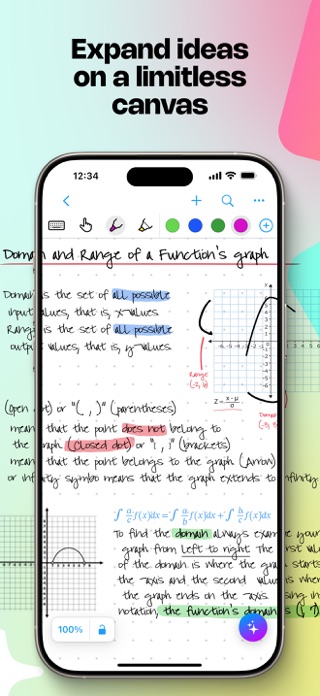 Expand ideas
on a limitless
canvas
12:34
Domain and Range of a Function's graph
Domain is the set of all possible
input values, that is, x-values
Range is the set of all possible
output values, that is, y-values
Range
Z = x-μ / σ
(open dot) or "( , )" (parentheses)
mean that the point does not belong to
the graph (Closed dot) or "[ , ]" (brackets)
mean that the point belongs to the graph (Arrow)
or infinity symbo means that the graph extends to infinity
∫ a c f(x)dx = ∫ a b f(x)dx + ∫ b c f(x)dx
To find the domain always examine your
graph from left to right The
of the domain is where the graph starts
the axis and the second value is
the graph ends on the taxis.
notation, the function's domain is
100%